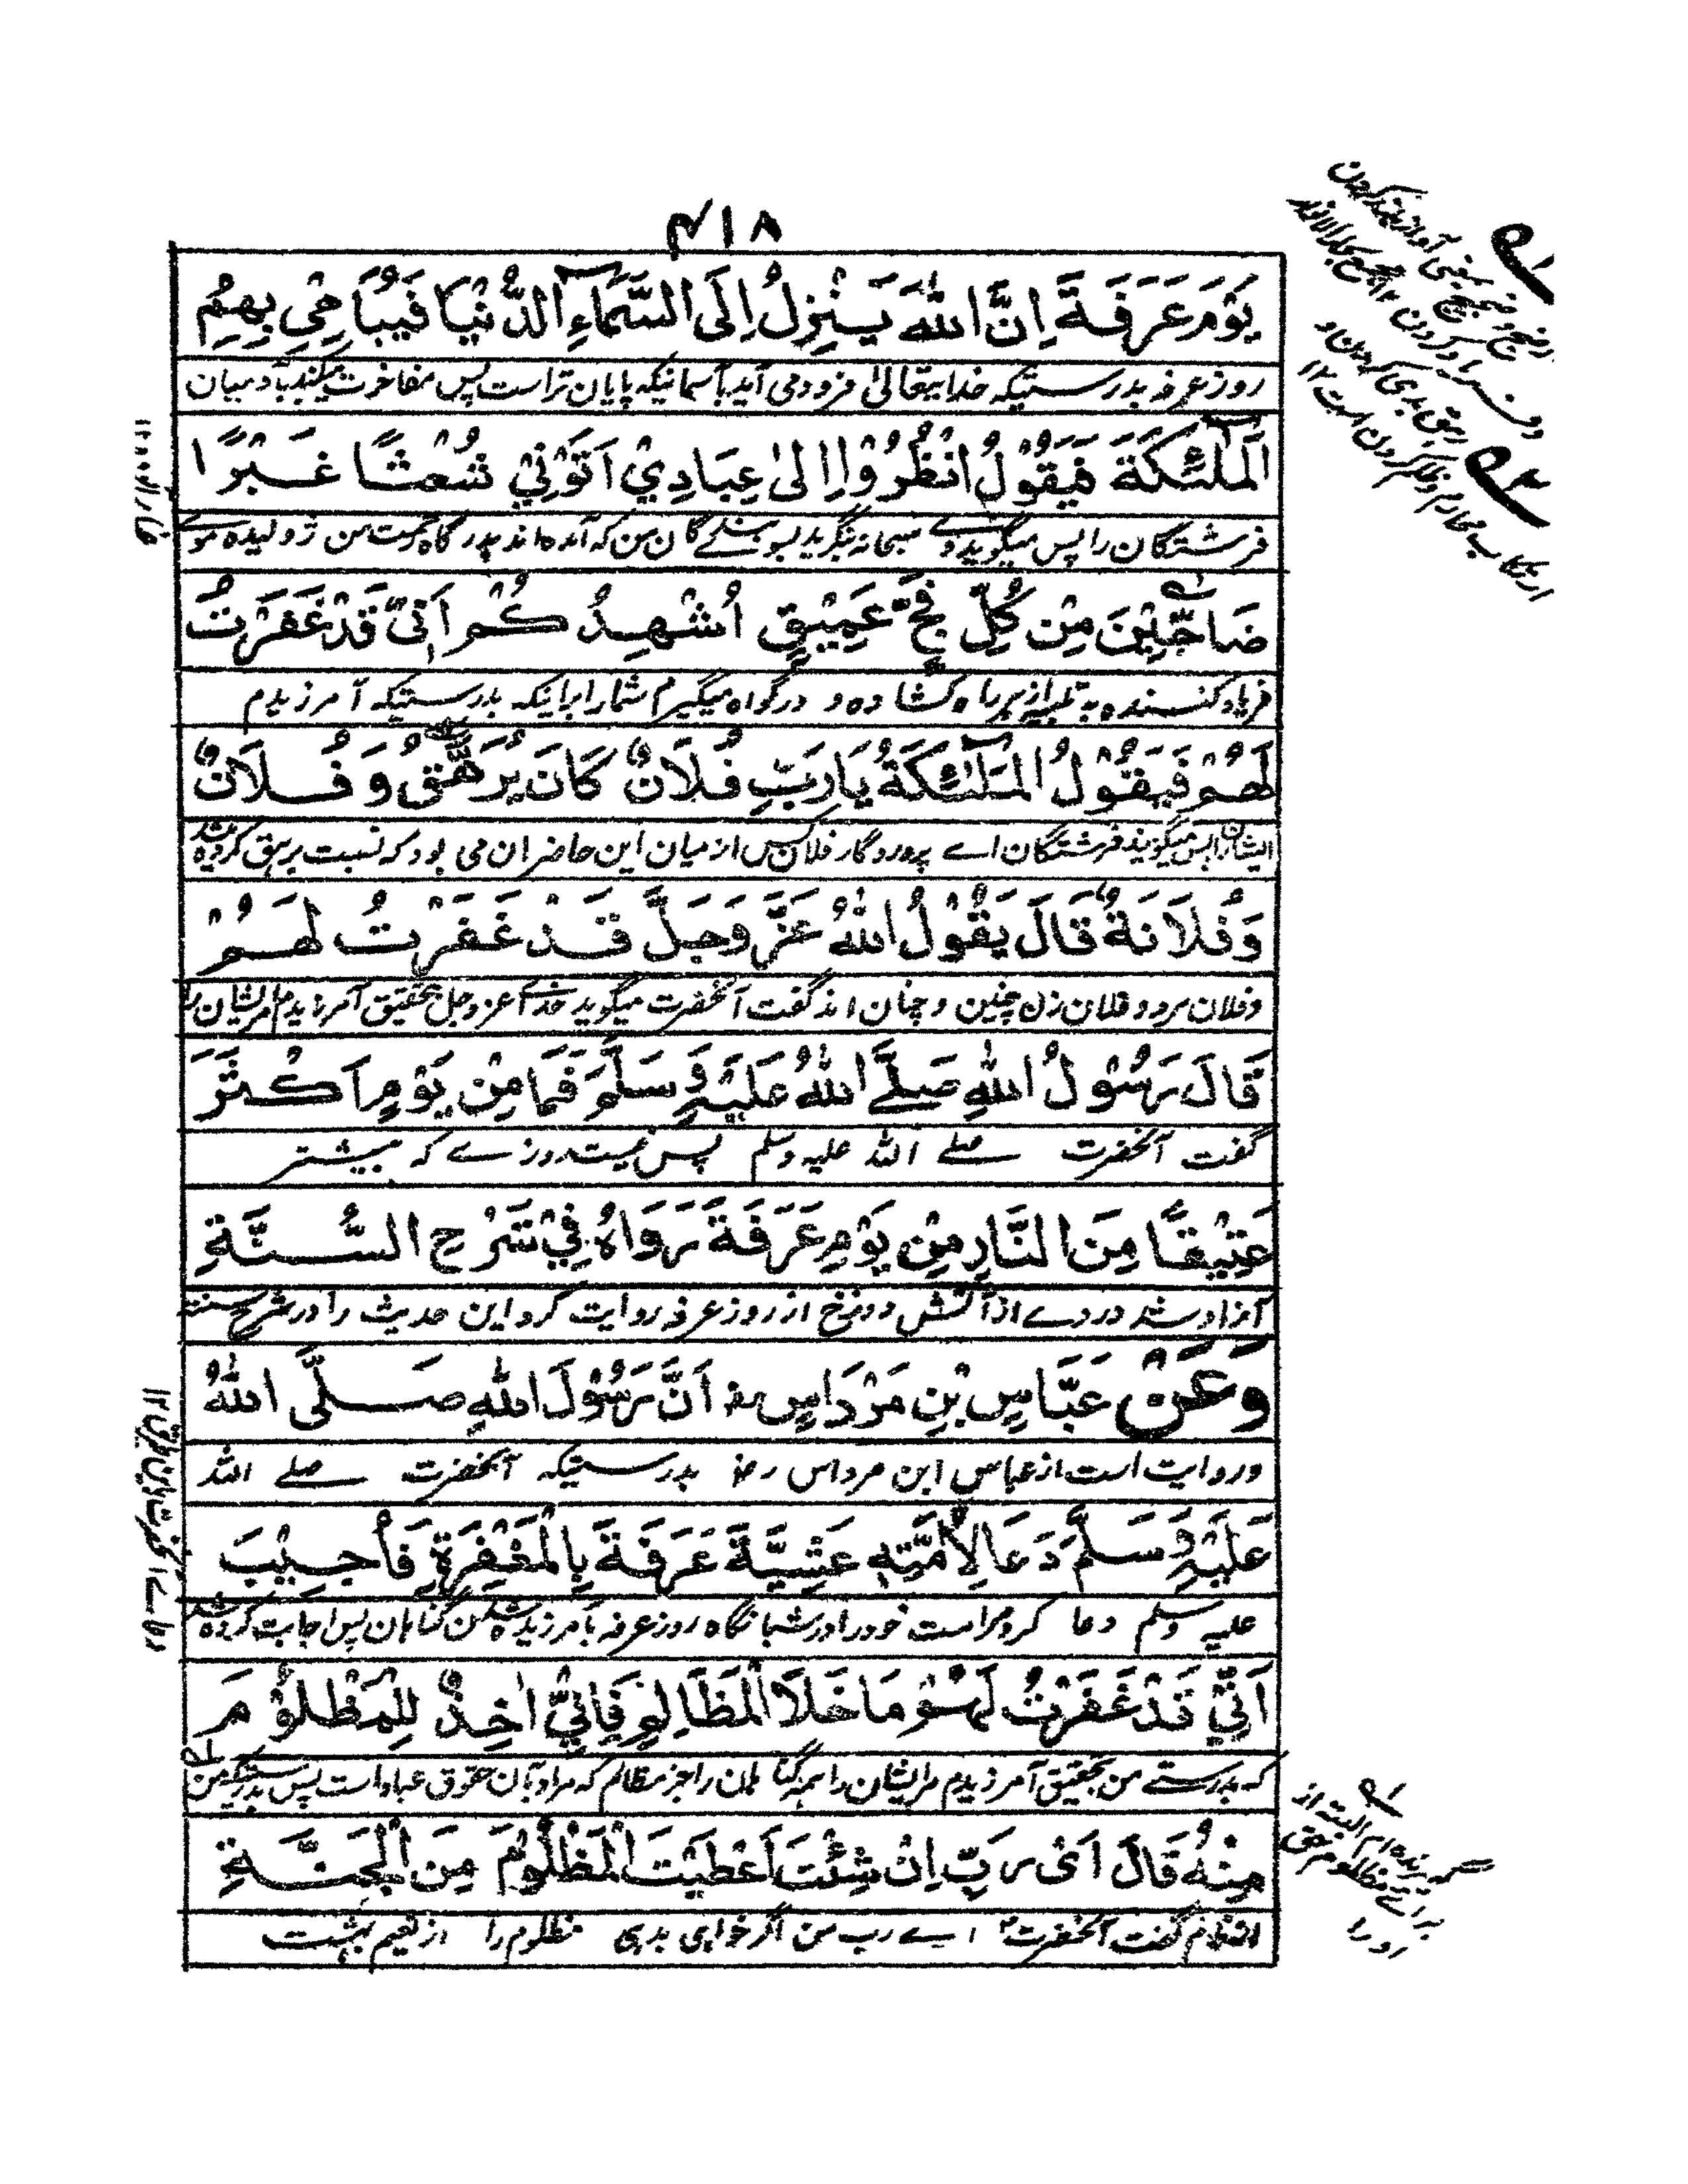 ۴۱۸
يَوْمَ عَرَفَةَ اِنَّ اللّٰهَ يَنْزِلُ اِلَى السَّمَآءِ الدُّنْيَا فَيُبَاهِيْ بِهِمُ
روز عرفه بدرستیکه خدایتعالیٰ فرودمی آید بآسمانیکه پایان تراست پس مفاخرت میکند بآدمیان
الْمَلٰٓئِكَةَ فَيَقُوْلُ انْظُرُوْا اِلىٰ عِبَادِيْ اَتَوْنِيْ شُعْثًا غَبْرًا
فرشتگان را پس میگوید وے سبحانه بنگرید بسوے بندگان من که آمده اند بدرگاه من ژولیده موے
ضَاجِّيْنَ مِنْ كُلِّ فَجٍّ عَمِيْقٍ اُشْهِدُكُمْ اَنِّىْ قَدْ غَفَرْتُ
فریاد کننده به تلبیه از هر راه کشاده و در گواه میگیرم شما را باینکه بدرستیکه آمرزیدم
لَهُمْ فَيَقُوْلُ الْمَلٰٓئِكَةُ يَا رَبِّ فُلَانٌ كَانَ يُرَهَّقُ وَ فُلَانٌ
ایشانرا پس میگویند فرشتگان اے پروردگار فلان کس از میان این حاضران می بود که نسبت برهق کرده شد
وَفُلَانَةٌ قَالَ يَقُوْلُ اللّٰهُ عَزَّ وَجَلَّ قَدْ غَفَرْتُ لَهُمْ
وفلان مرد و فلان زن چنین و چنان اند گفت آنحضرت میگوید خداے عزوجل بتحقیق آمرزیدم مرایشان را
قَالَ رَسُوْلُ اللّٰهِ صَلَّے اللّٰهُ عَلَيْهِ وَسَلَّمَ فَمَا مِنْ يَوْمٍ اَكْثَرَ
گفت آنحضرت صلے اللہ علیہ وسلم پس نیست روزے که بیشتر
عَتِيْقًا مِنَ النَّارِ مِنْ يَوْمِ عَرَفَةَ رَوَاهُ فِيْ شَرْحِ السُّنَّةِ
آزاد شد در وے از آتش دوزخ از روز عرفه روایت کرد این حدیث را در شرح سنته
وَعَنْ عَبَّاسِ بْنِ مَرْدَاسٍ رض اَنَّ رَسُوْلَ اللّٰهِ صَلَّى اللّٰهُ
وروایت است از عباس ابن مرداس رض بدرستیکه آنحضرت صلے اللہ
عَلَيْهِ وَسَلَّمَ دَعَا لِاُمَّتِهٖ عَشِيَّةَ عَرَفَةَ بِالْمَغْفِرَةِ فَاُجِيْبَ
علیه وسلم دعا کرد مرامت خود را در شبانگاه روز عرفه بآمرزیده شدن گناهان پس اجابت کرده شد
اَنِّيْ قَدْ غَفَرْتُ لَهُمْ مَا خَلَا الْمَظَالِمِ فَاِنِّيْ اٰخِذٌ لِلْمَظْلُوْمِ
که بدرستے من بتحقیق آمرزیدم مرایشان را همه گناهان را جز مظالم که مراد بآن حقوق عباد است پس بدرستیکه من
مِنْهُ قَالَ اَىْ رَبِّ اِنْ شِئْتَ اَعْطَيْتَ الْمَظْلُوْمَ مِنَ الْجَنَّةِ
گفت آنحضرت اے رب من اگر خواهی بدهی مظلوم را از نعیم بهشت